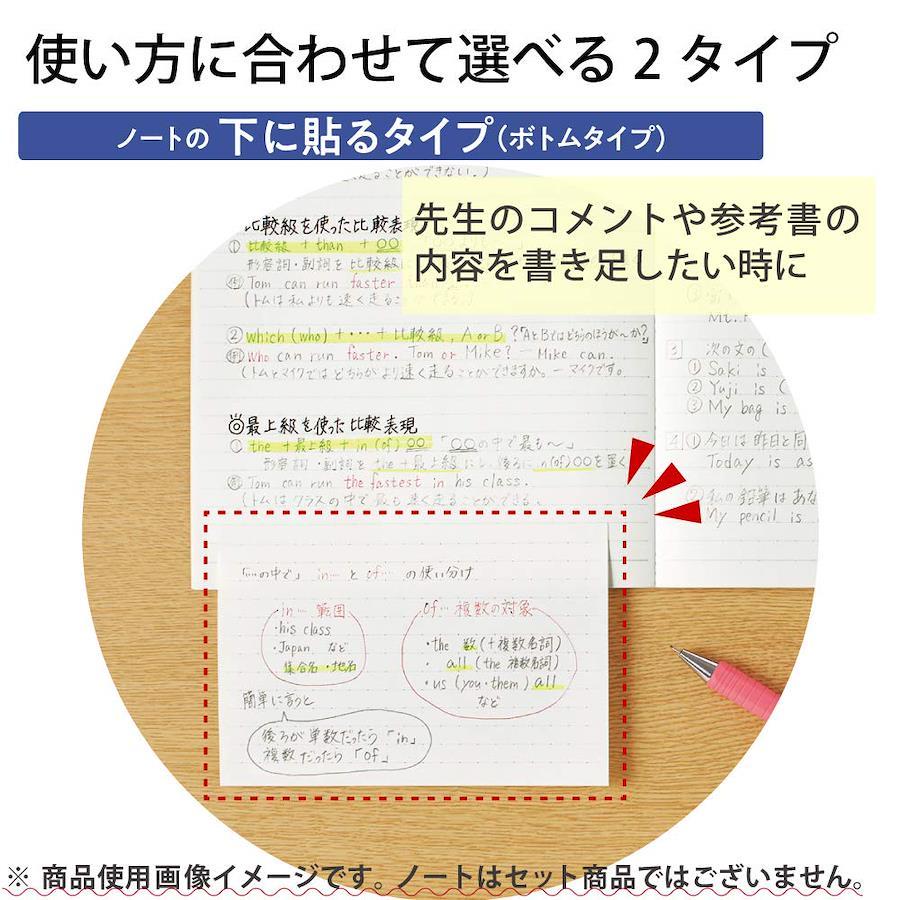 使い方に合わせて選べる2タイプ
ノートの 下に貼るタイプ(ボトムタイプ)
先生のコメントや参考書の
内容を書き足したい時に
ることができない。)
比較級を使った比較表現
① 比較級 + than + ○○
形容詞・副詞を 比較級
例 Tom can run faster
(トムは私よりも速く走ること
② which (who) + … + 比較級, A or B ?「AとBではどちらのほうが〜か?」
例 Who can run faster. Tom or Mike? — Mike can.
(トムとマイクではどちらがより速く走ることができますか。— マイクです。
◎最上級を使った比較表現
① the +最上級 + in (of) ○○ 「○○の中で最も〜」
形容詞・副詞を the +最上級にし、後ろに in(of)○○を置く
例 Tom can run the fastest in his class.
(トムはクラスの中で最も速く走ることができる。
Mt.
3 次の文の(
① Saki is
② Yuji is (
③ My bag is
4 ① 今日は昨日と同
Today is as
② 私の鉛筆はあな
My pencil is
「…の中で」 in… と of… の使い分け
in… 範囲
・his class
・Japan など
集合名・地名
of… 複数の対象
・the 数(+複数名詞)
・ all (the 複数名詞)
・us (you・them) all
など
簡単に言うと
後ろが単数だったら「in」
複数だったら「of」
※ 商品使用画像イメージです。ノートはセット商品ではございません。